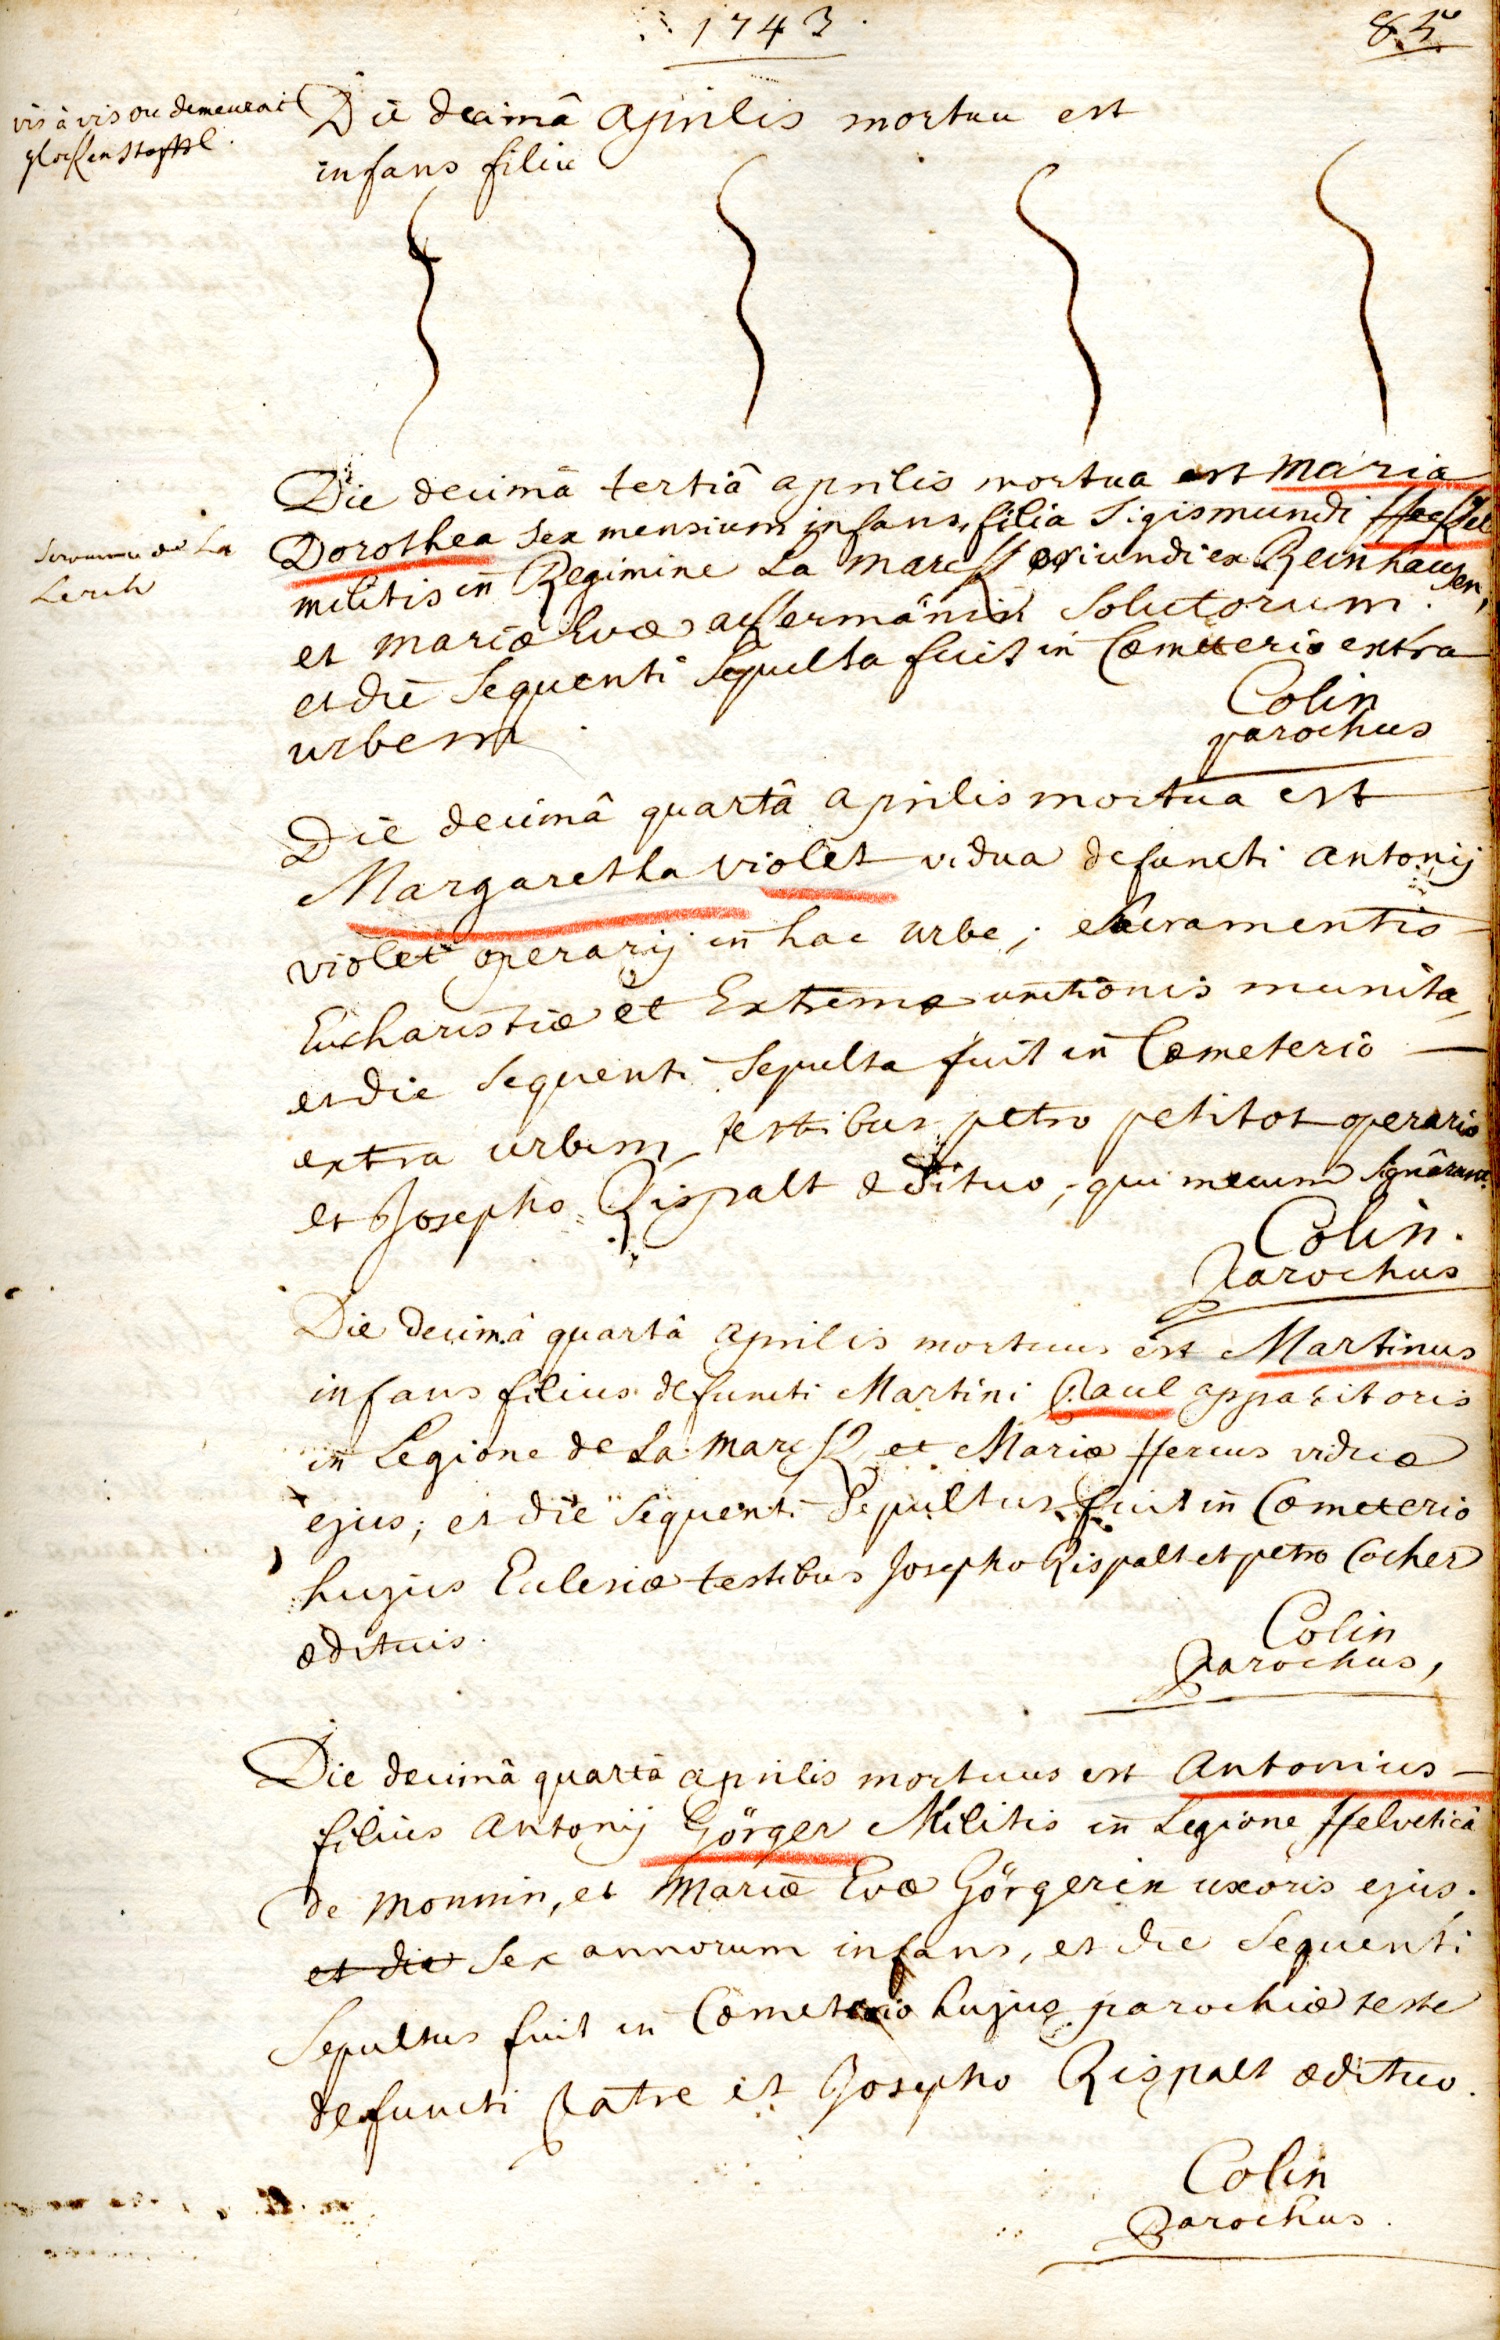 1743
85
vis à vis ou demeurait
Die decimâ Aprilis mortuu est
infans filiu
Die decimâ tertiâ aprilis mortua est Maria
Dorothea sex mensium infans, filia Sigismundi
militis in Regimine La Marck oriundi ex Reinhausen,
de La
Lerch
et Mariæ Evæ solutorum.
et die sequenti sepulta fuit in Cœmeterio extra
urbem
Colin
parochus
Die decimâ quartâ aprilis mortua est
Margaretha Violet vidua defuncti Antonij
Violet operarij in hac urbe; Sacramentis
Eucharistiæ et Extremæ unctionis munita,
et die sequenti sepulta fuit in Cœmeterio
extra urbem, testibus petro petitot operario
et Josepho Rispalt ædituo, qui mecum signârunt.
Colin.
Parochus
Die decimâ quartâ aprilis mortuus est Martinus
infans filius defuncti Martini Paul apparitoris
in Legione de La Marck et Mariæ viduæ
ejus; et die sequenti sepultus fuit in Cœmeterio
hujus Eclesiæ testibus Josepho Rispalt et petro Cocher
ædituis.
Colin
Parochus,
Die decimâ quartâ aprilis mortuus est Antonius
filius Antonij Görger Militis in Legione Helveticâ
de Monnin, et Mariæ Evæ Görgerin uxoris ejus.
et die sex annorum infans, et die sequenti
Sepultus fuit in Cœmeterio hujus parochiæ teste
defuncti Patre et Josepho Rispalt ædituo.
Colin
Parochus.